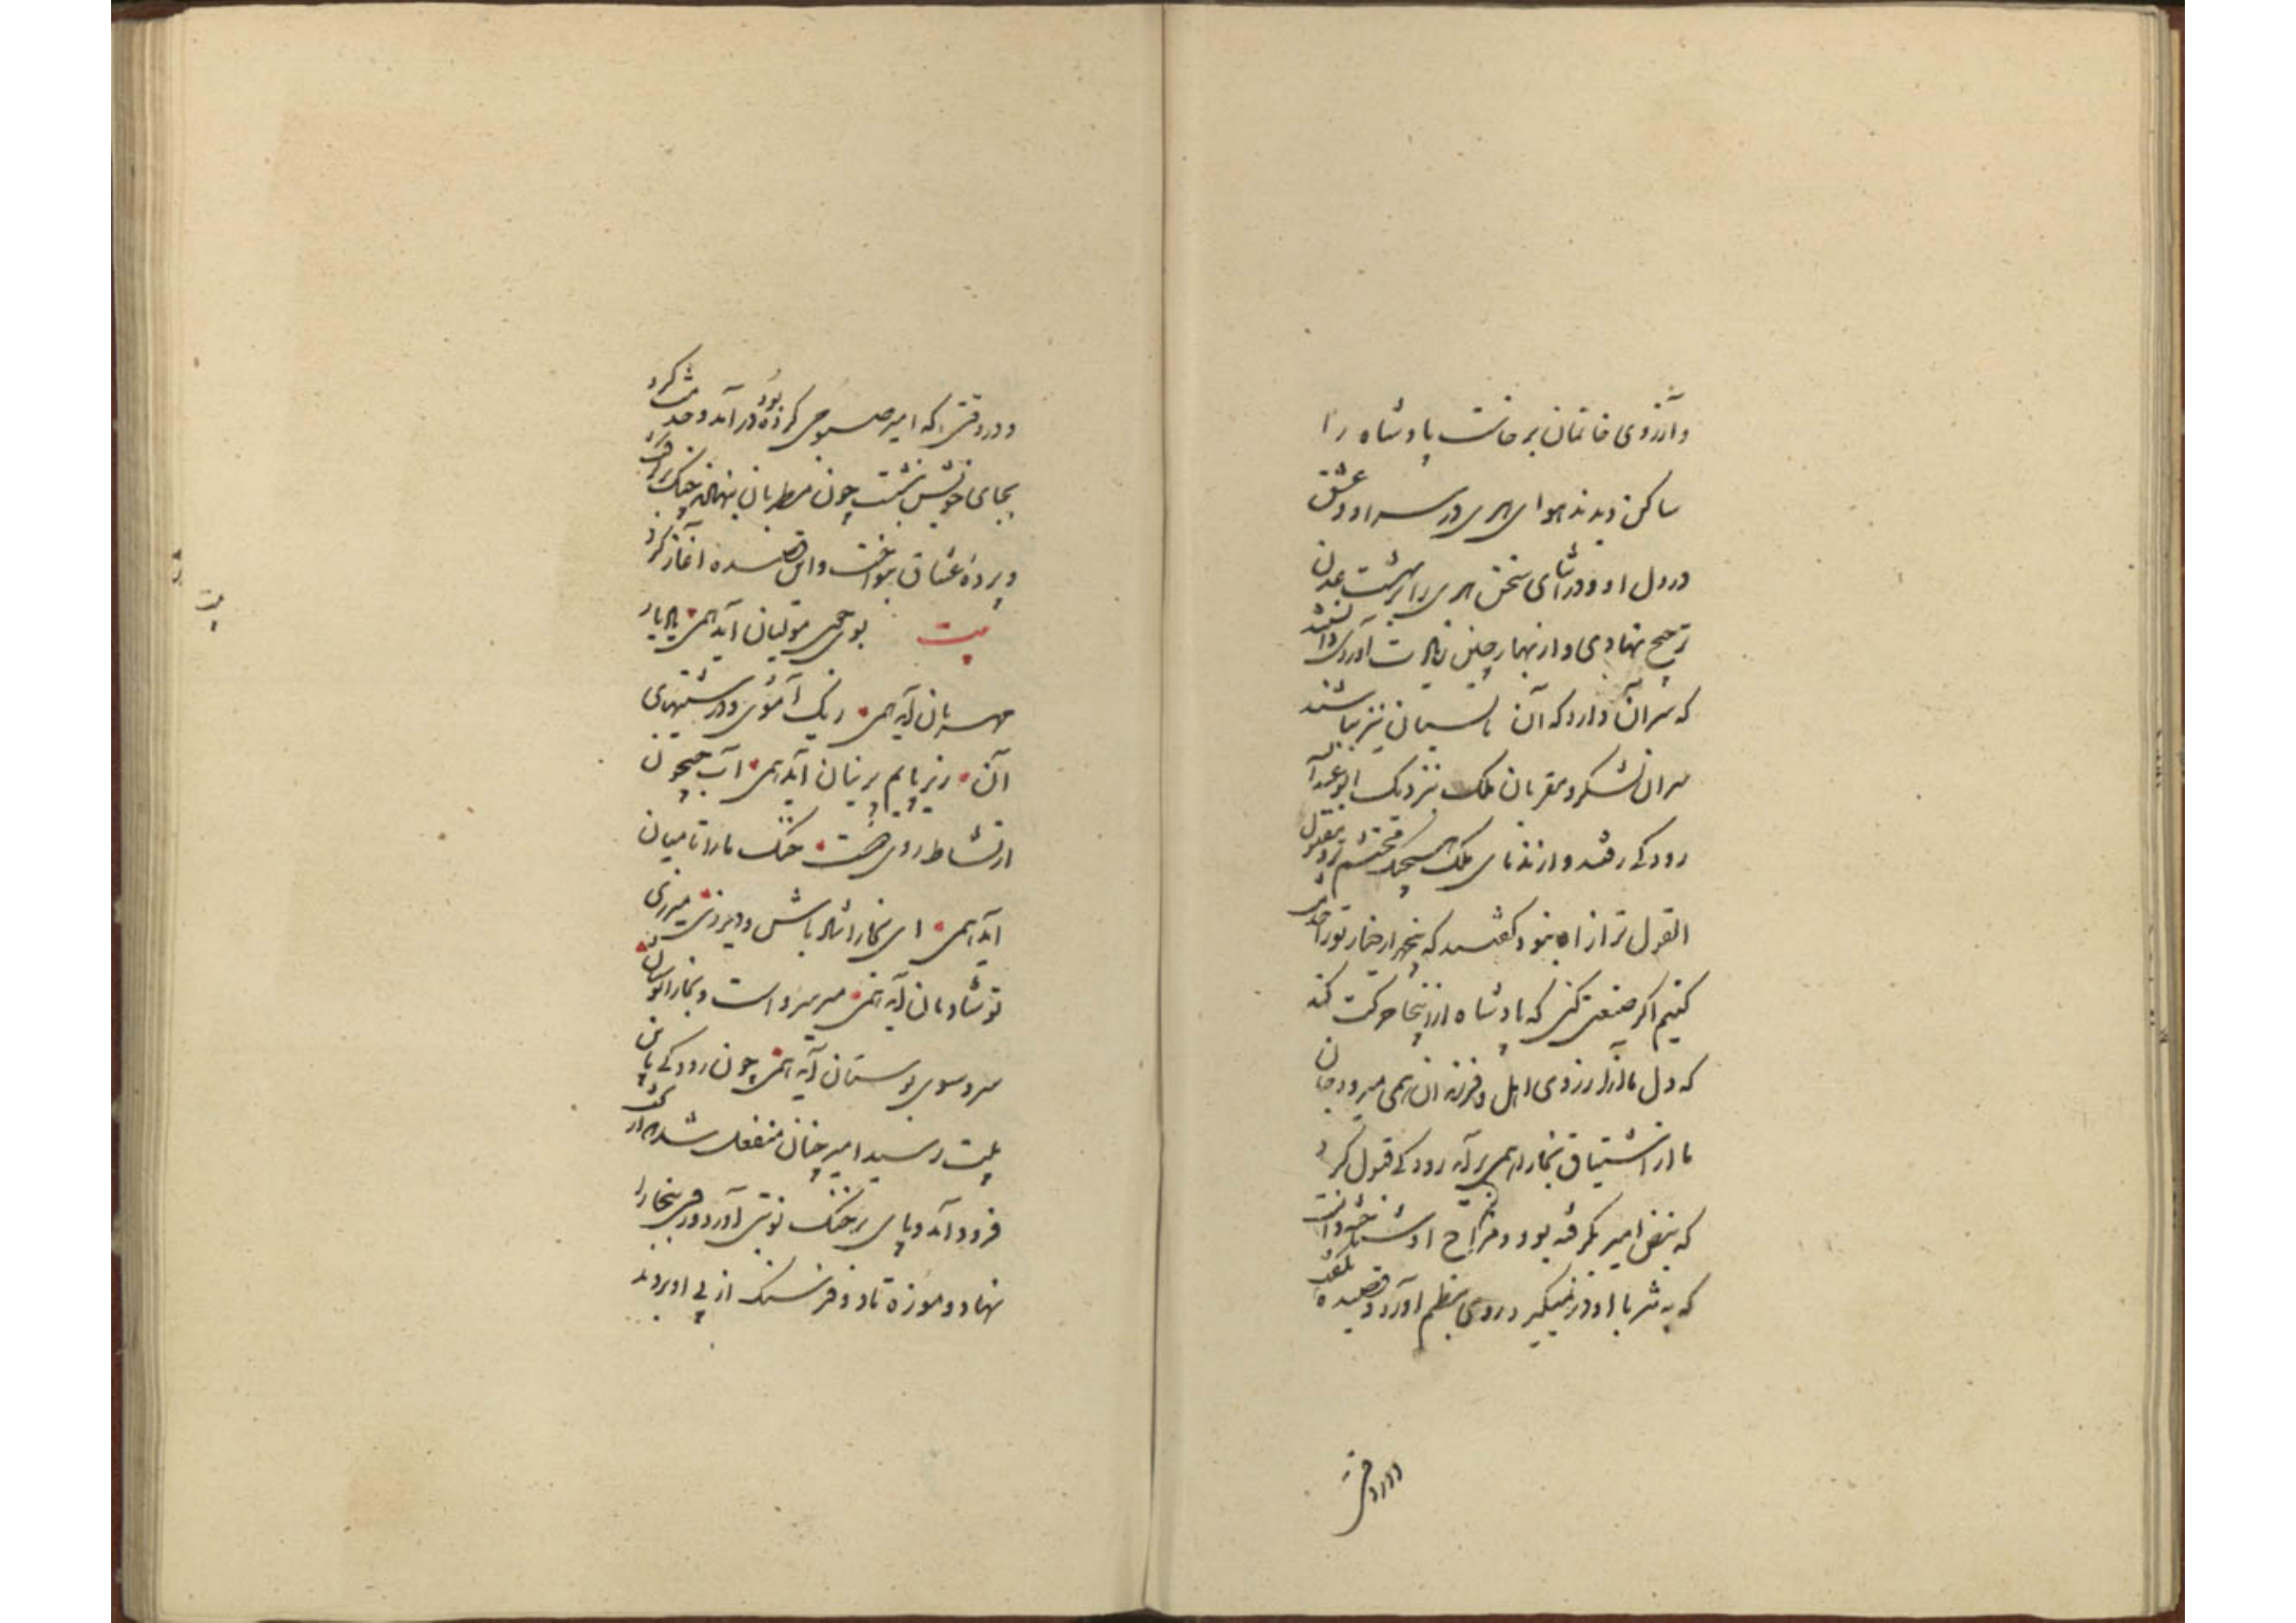 و آرزوی خانمان برخاست پادشاه را
ساکن دیدند هوای هری در سر او و عشق
در دل او و در اثنای سخن هری را بر بهشت عدن
ترجیح نهادی و از بهار چین زیادت آوردی دانستند
که سر آن دارد که آن تابستان نیز بباشند
سران لشکر و مقربان ملک بنزدیک ابو عبدالله
رودکی رفتند و از ندمای ملک هیچکس محتشم‌تر و مقبول
القول‌تر از او نبود گفتند که پنجهزار دینار تو را خدمت
کنیم اگر صنعتی کنی که پادشاه از اینجا حرکت کند
که دل ما از آرزوی اهل و فرزندان همی میرود و جان
ما از اشتیاق بخارا همی برآید رودکی قبول کرد
که نبض امیر بگرفته بود و مزاج او شناخته دانست
که به نثر با او درنمیگیرد روی بنظم آورد و قصیده بگفت
و در وقتی
و در وقتی که امیر صبوحی کرده بود درآمد و خدمت کرد
بجای خویش نشست چون مطربان چنک برگرفت
و پردهٔ عشاق بنواخت و این قصیده آغاز کرد
بیت بوی جوی مولیان آید همی یاد یار
مهربان آید همی ریک آموی و درشتیهای
آن زیر پایم پرنیان آید همی آب جیحون
از نشاط روی دوست خنک ما را تا میان
آید همی ای بخارا شاد باش و دیر زی میر زی
تو شادمان آید همی میر سرو است و بخارا بوستان
سرو سوی بوستان آید همی چون رودکی باین
بیت رسید امیر چنان منفعل شد که از تخت
فرود آمد و پای بر خنک نوبتی آورد و روی ببخارا
نهاد و موزه تا دو فرسنک از پی او بردند